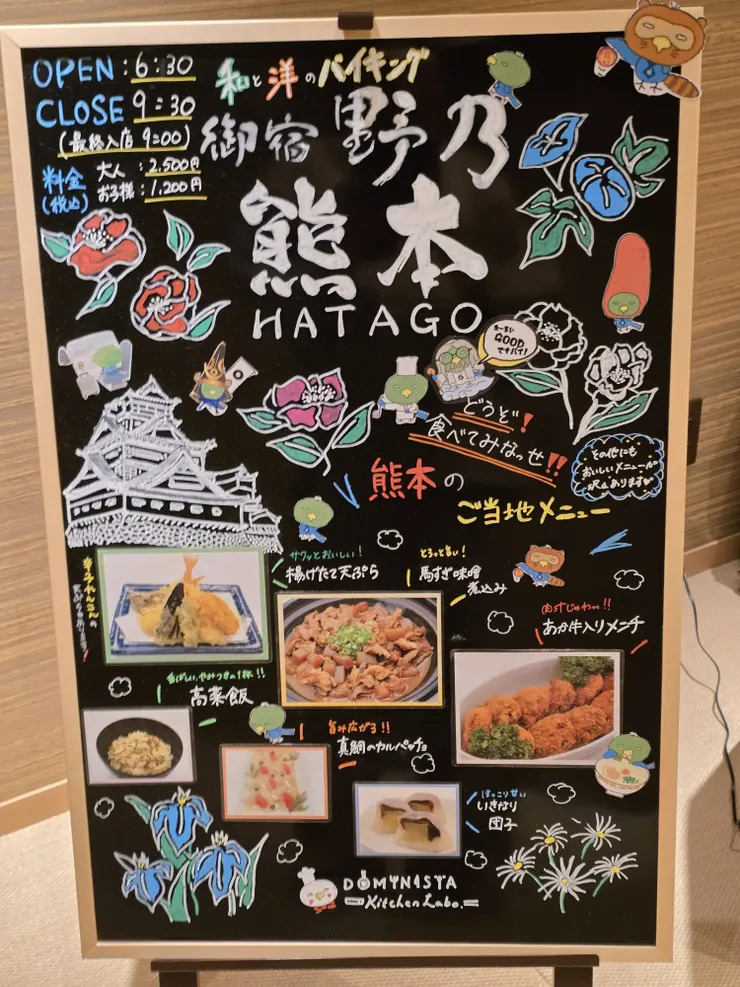 OPEN : 6:30
CLOSE 9:30
(最終入店 9:00)
料金
(税込)
大人 : 2,500円
お子様 : 1,200円
和と洋のバイキング
御宿 野乃
熊本
HATAGO
GOOD
どうぞ!
食べてみなっせ!!
その他にも
おいしいメニューが
沢山ありますが
熊本の
ご当地メニュー
サクッとおいしい!
揚げたて天ぷら
とろっと旨い!
馬すじ味噌
煮込み
肉汁じゅわぁ!!
あか牛入りメンチ
高菜飯
旨み広がる!!
真鯛のカルパッチョ
ほっこり甘い
いきなり
団子
DOMINISTA
Kitchen Labo.